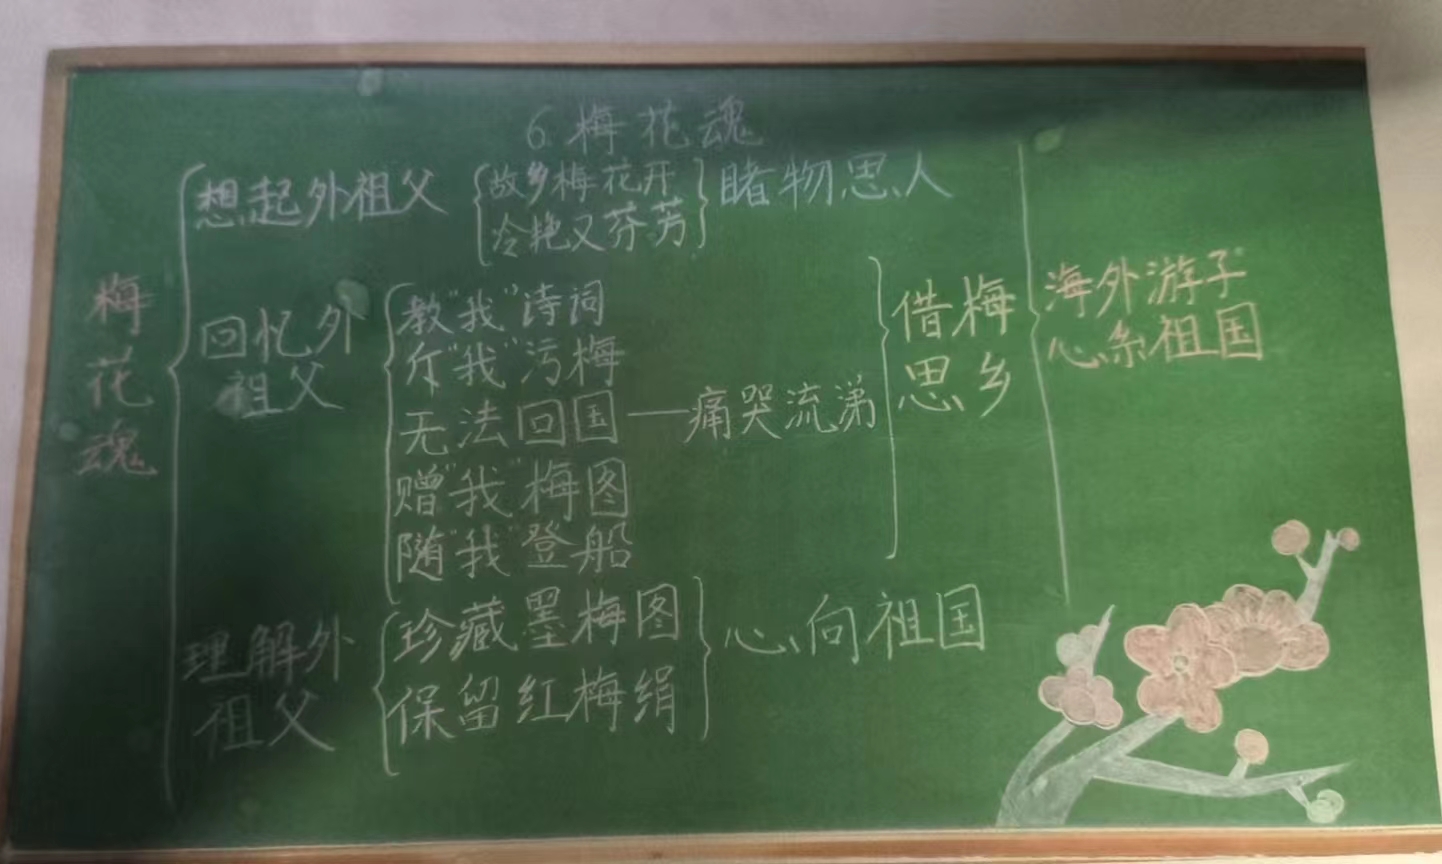 6.梅花魂
梅花魂
想起外祖父
故乡梅花开
冷艳又芬芳
睹物思人
回忆外
祖父
教“我”诗词
斥“我”污梅
无法回国——痛哭流涕
赠“我”梅图
随“我”登船
借梅
思乡
理解外
祖父
珍藏墨梅图
保留红梅绢
心向祖国
海外游子
心系祖国